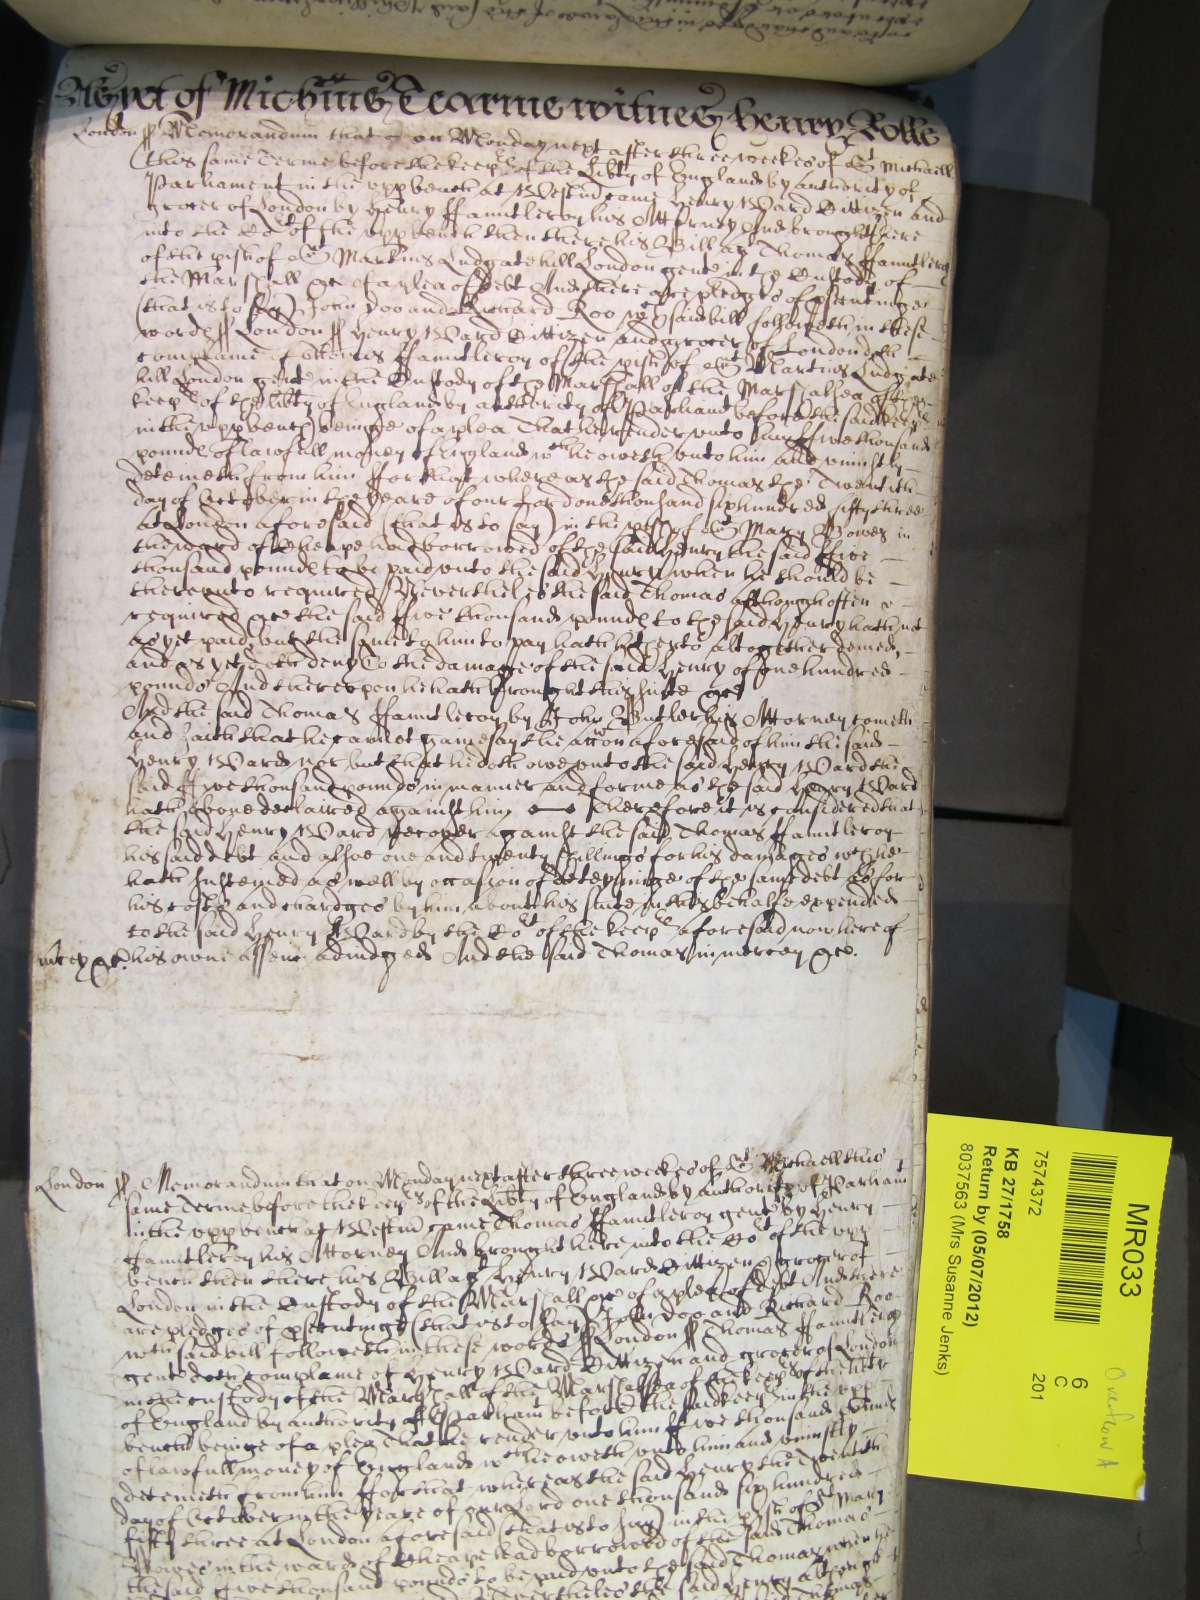 As yet of Mich'mis Tearme witnes Henry Rolle
London ss Memorandum that on Monday next after three weekes of St Michaell
this same Terme before the keep's of the Lib'ty of England by authority of
Parliament in the upp bench at Westm' came Henry Ward Cittizen and
grocer of London by Henry ffauntleroy his Attorney And brought here
into the Co't of the upp bench then there his Bill ag't Thomas ffauntleroy
of the p'ish of St Martins Ludgate hill London gent in the Custody of
the Marshall &c of a plea of debt And there are pledges of p'secutinge
(that is to say) John Doo and Richard Roo w'ch said bill followeth in these
words ss London ss Henry Ward Cittizen and grocer of London doth
complaine of Thomas ffauntleroy of the p'ish of St Martins Ludgate
hill London gent in the Custody of the Marshall of the Marshalsea of the
keep's of the lib'ty of England by authority of Parliam't before the said keep's
in the upp bench beinge of a plea That he render unto him ffive thousand
pounds of lawfull money of England w'ch he oweth unto him and uniustly
deteineth from him ffor that whereas the said Thomas the Twentith
day of October in the yeare of our Lord one thousand six hundred fifty three
at London aforesaid (that is to say) in the p'ish of St Mary Bowes in
the ward of Cheape had borrowed of the said Henry the said ffive
thousand pounds to be paid unto the said Henry when he should be
thereunto required Neverthelesse the said Thomas although often
required &c the said ffive thousand pounds to the said Henry hath not
as yet paid but the same to him to pay hath hitherto altogether denied,
and as yet doth deny To the damage of the said Henry of one hundred
pounds And thereupon he hath brought this suite &c
And the said Thomas ffauntleroy by John Butler his Attorney cometh
and saith that he cannot gainesay the acc'on aforesaid of him the said
Henry Ward nor but that he doth owe unto the said Henry Ward the
said ffive thousand pounds in manner and forme as the said Henry Ward
hath above declaired against him Therefore it is considered that
the said Henry Ward recover against the said Thomas ffauntleroy
his said debt and alsoe one and twenty shillings for his damages w'ch he
hath susteined as well by occasion of deteyninge of the same debt as for
his costs and chardges by him about his suite in this behalfe expended
to the said Henry Ward by the Co't of the keep's aforesaid now here of
m'cy &c. his owne assent adiudged And the said Thomas in mercy &c.
London ss Memorandum that on Monday next after three weekes of St Michaell this
same Terme before the keep's of the Lib'ty of England by authority of Parliam't
in the upp bench at Westm' came Thomas ffauntleroy gent by Henry
ffauntleroy his Attorney And brought here into the Co't of the upp
bench then there his Bill ag't Henry Ward Cittizen & grocer of
London in the Custody of the Marshall &c of a plea of debt And there
are pledges of p'secutinge (that is to say) John Doo and Richard Roo
w'ch said bill followeth in these words ss London ss Thomas ffauntleroy
gent doth complaine of Henry Ward Cittizen and grocer of London
in the custody of the Marshall of the Marshalsea of the keep's of the lib'ty
of England by authority of Parliam't before the said keep's in the upp
bench beinge of a plea That he render unto him ffive thousand pounds
of lawfull money of England w'ch he oweth unto him and uniustly
deteineth from him ffor that whereas the said Henry the Twentith
day of October in the yeare of our Lord one thousand six hundred
fifty three at London aforesaid (that is to say) in the p'ish of St Mary
Bowes in the ward of Cheape had borrowed of the said Thomas
the said ffive thousand pounds to be paid unto the said Thomas when he
Neverthelesse the said Henry although
MR033
6
C
201
7574372
KB 27/1758
Return by (05/07/2012)
8037563 (Mrs Susanne Jenks)
Overflow A